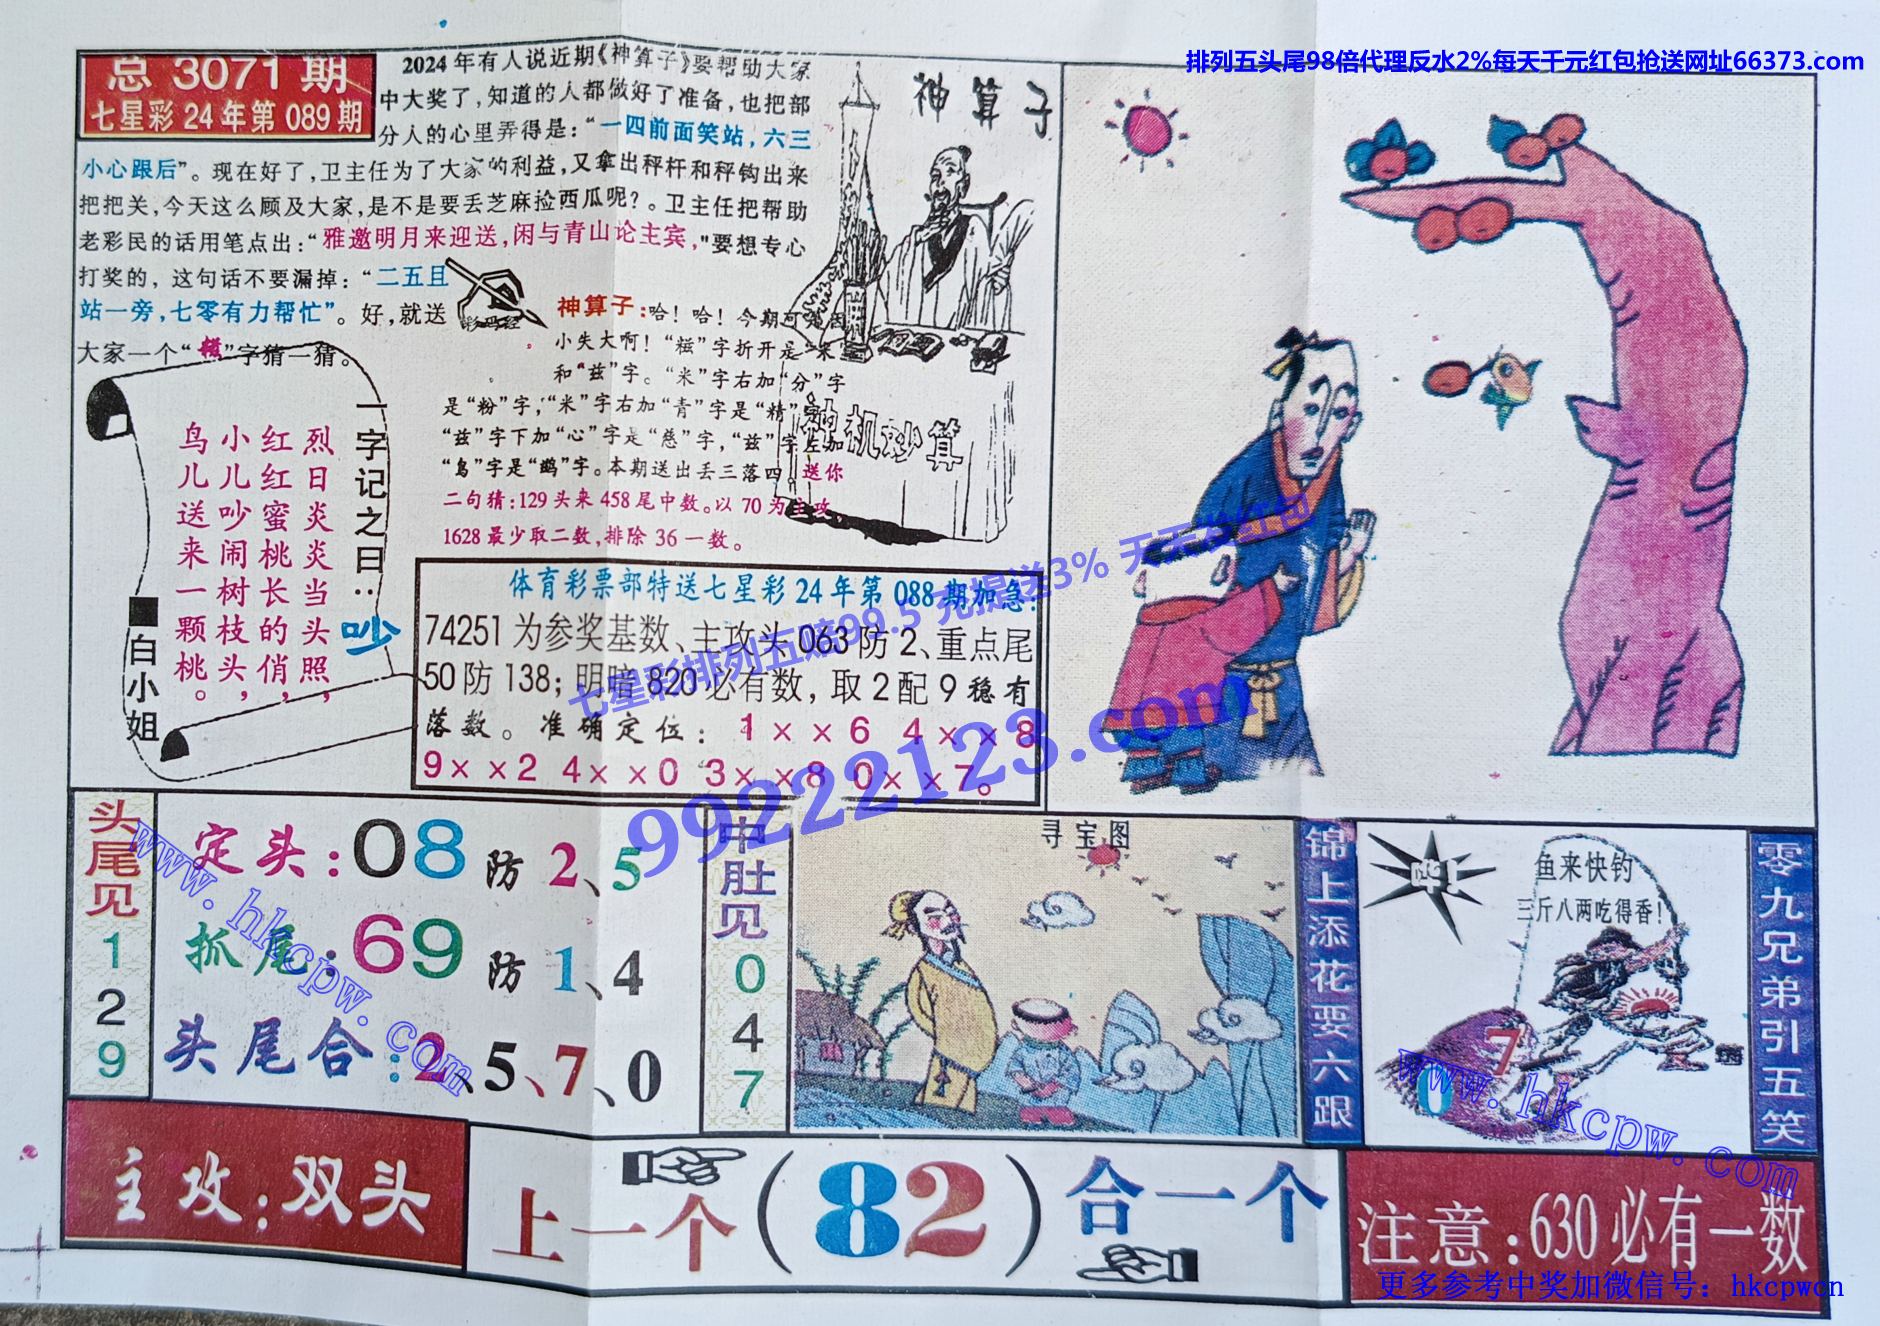 排列五头尾98倍代理反水2%每天千元红包抢送网址66373.com
总 3071 期
七星彩 24 年第 089 期
2024 年有人说近期《神算子》要帮助大家
中大奖了，知道的人都做好了准备，也把部
分人的心里弄得是：“一四前面笑站，六三
小心跟后”。现在好了，卫主任为了大家的利益，又拿出秤杆和秤钩出来
把把关，今天这么顾及大家，是不是要丢芝麻捡西瓜呢？。卫主任把帮助
老彩民的话用笔点出：“雅邀明月来迎送，闲与青山论主宾，"要想专心
打奖的，这句话不要漏掉：“二五且
站一旁，七零有力帮忙”。好，就送
大家一个“糍”字猜一猜。
神算子
神算子：哈！哈！今期可是因
小失大啊！“糍”字折开是“米”
和“兹”字。“米”字右加“分”字
是“粉”字，“米”字右加“青”字是“精”字，
“兹”字下加“心”字是“慈”字，“兹”字左加
“鸟”字是“鹚”字。本期送出丢三落四，送你
二句猜：129 头来 458 尾中数。以 70 为主攻，
1628 最少取二数，排除 36 一数。
神机妙算
一字记之曰：吵
烈日炎炎当头照，
红红蜜桃长的俏，
小儿吵闹树枝头，
鸟儿送来一颗桃。
■白小姐
体育彩票部特送七星彩 24 年第 088 期加急：
74251 为参奖基数、主攻头 063 防 2、重点尾
50 防 138；明暗 820 必有数，取 2 配 9 稳有
落数。准确定位：1××6 4××8
9××2 4××0 3××8 0××7。
七星彩排列五赔99.5 充提送3% 天天发红包
99222123.com
头尾见129
定头：08 防 2、5
抓尾：69 防 1、4
头尾合：2、5、7、0
www.hkcpw.com
中肚见047
寻宝图
锦上添花要六跟
鱼来快钓
三斤八两吃得香！
7
0
www.hkcpw.com
零九兄弟引五笑
主攻：双头
上一个（82）合一个
注意：630 必有一数
更多参考中奖加微信号：hkcpwcn